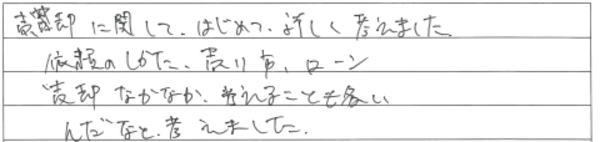 売却に関して、はじめて、詳しく考えました。
依頼のしかた、売り方、ローン
売却なかなか、考えることも多い
んだなと、考えました。